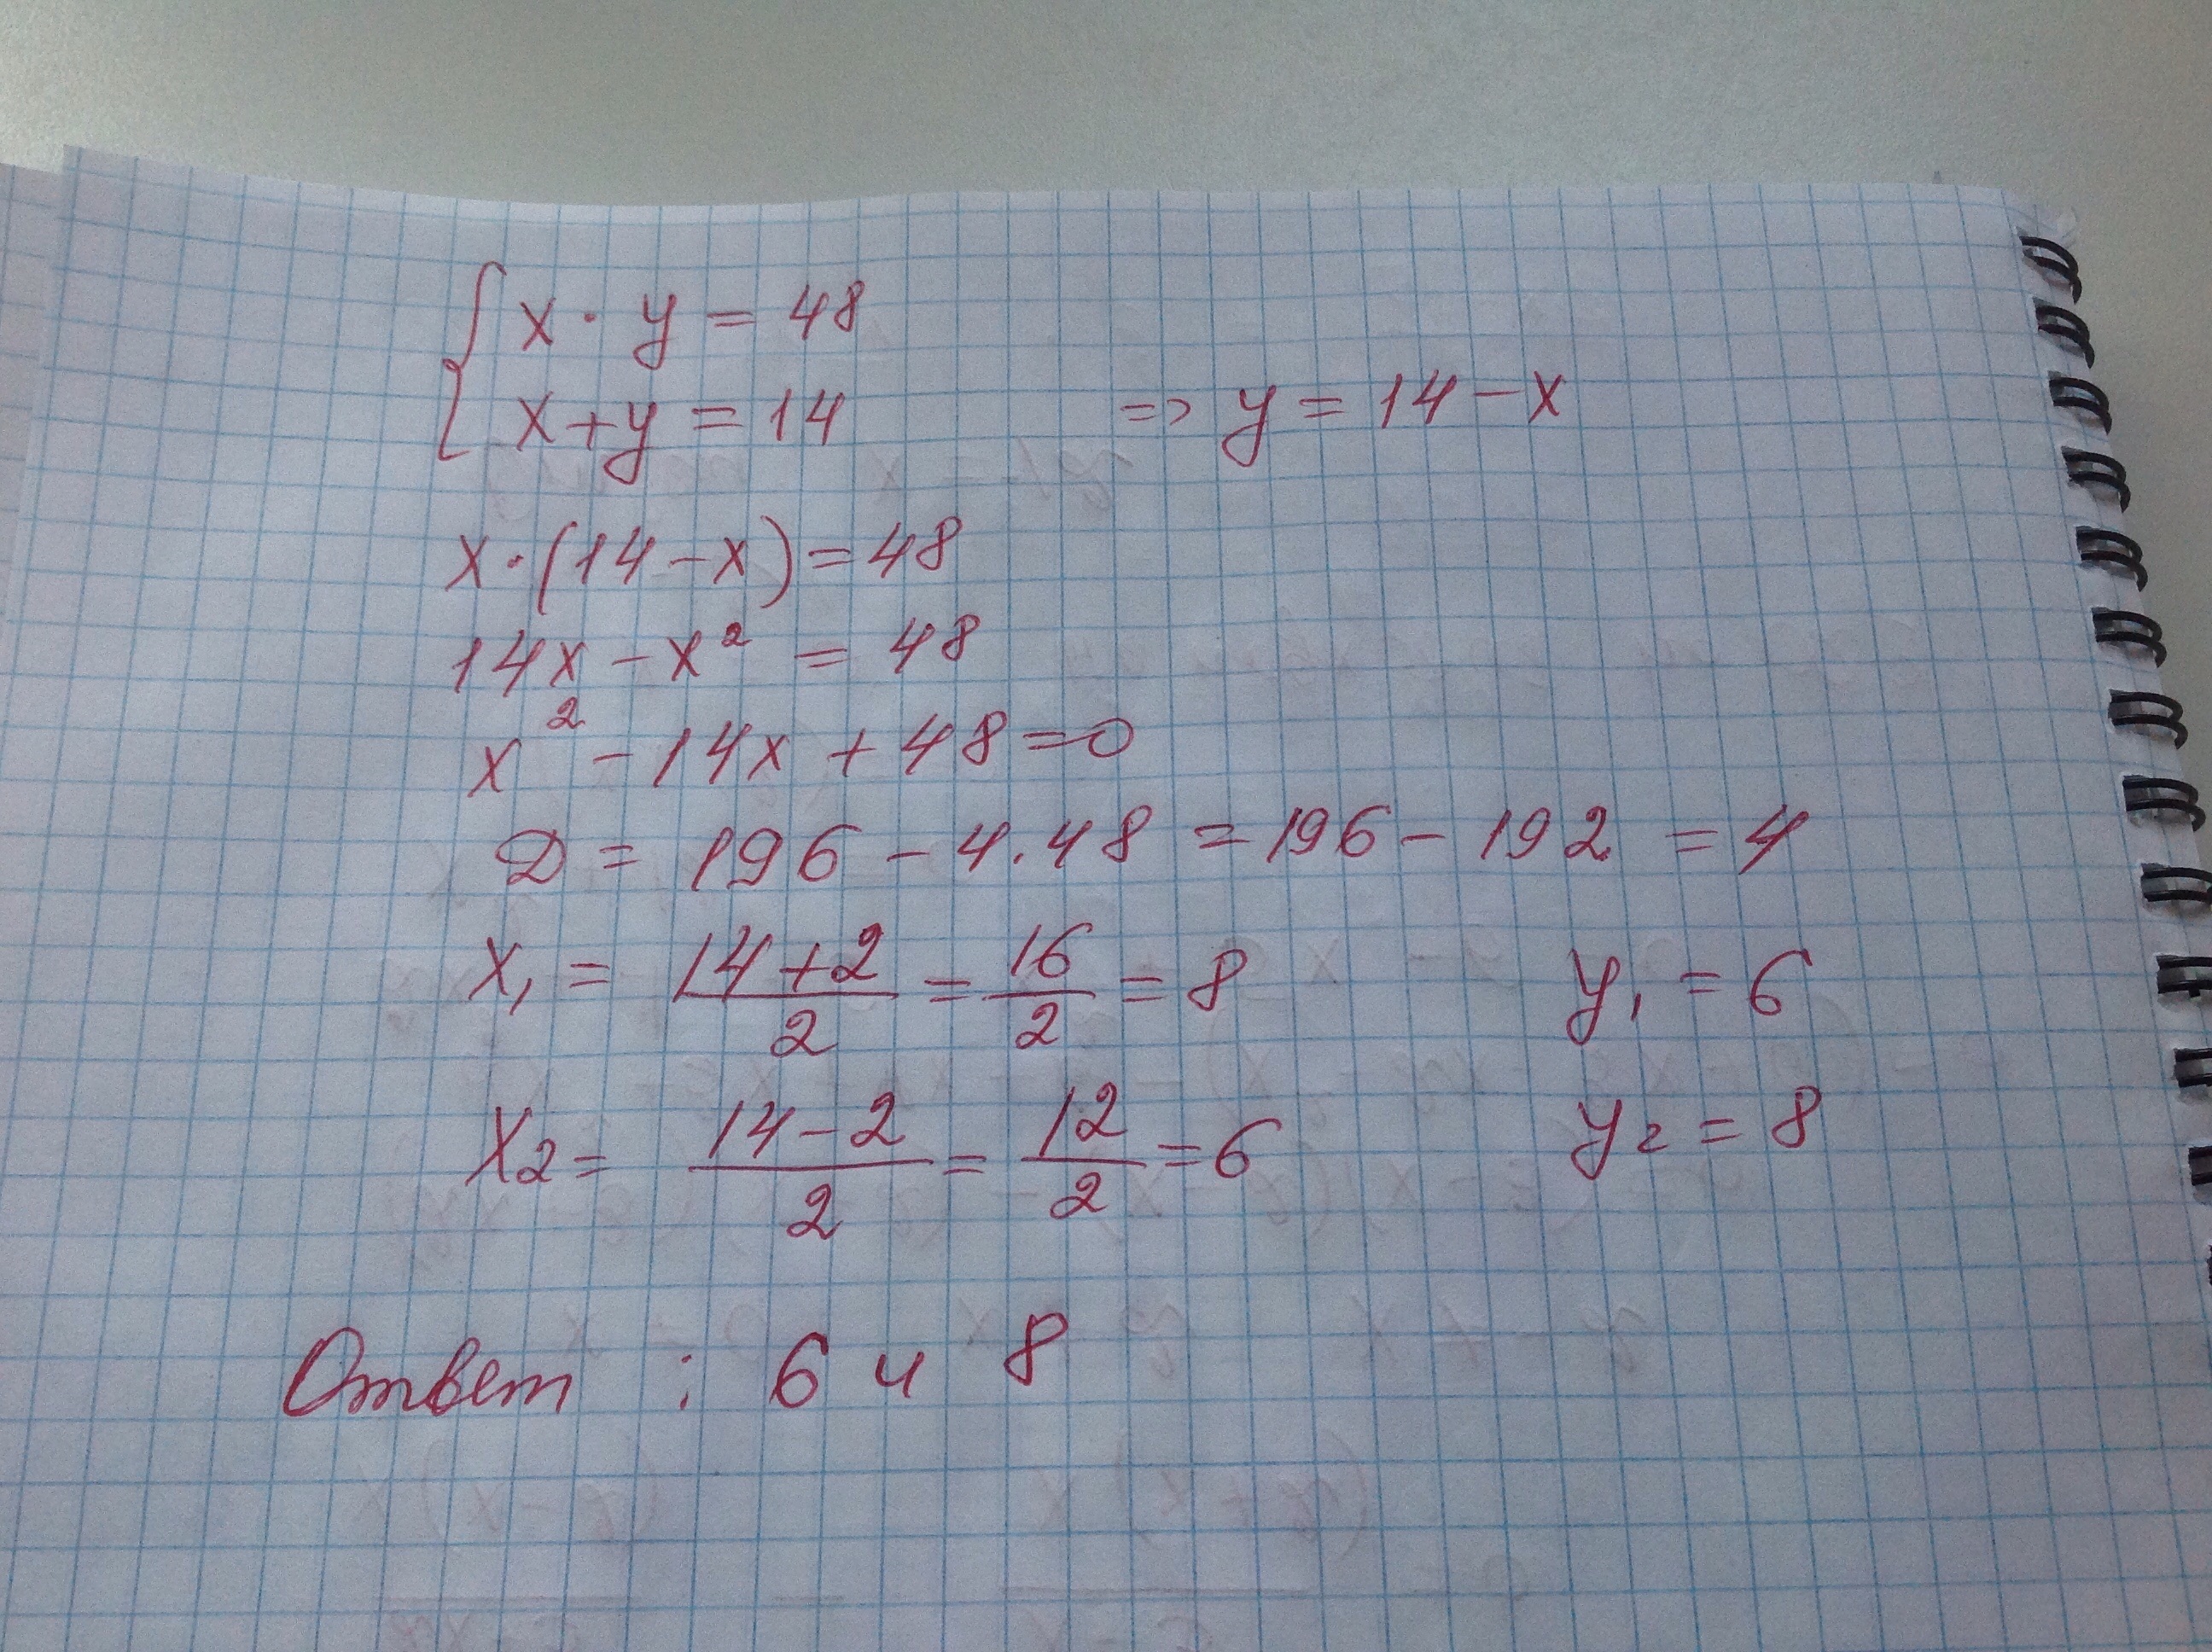 { x · y = 48
x + y = 14 => y = 14 - x
x · (14 - x) = 48
14x - x² = 48
x² - 14x + 48 = 0
D = 196 - 4 · 48 = 196 - 192 = 4
x₁ = (14 + 2)/2 = 16/2 = 8 y₁ = 6
x₂ = (14 - 2)/2 = 12/2 = 6 y₂ = 8
Ответ : 6 и 8